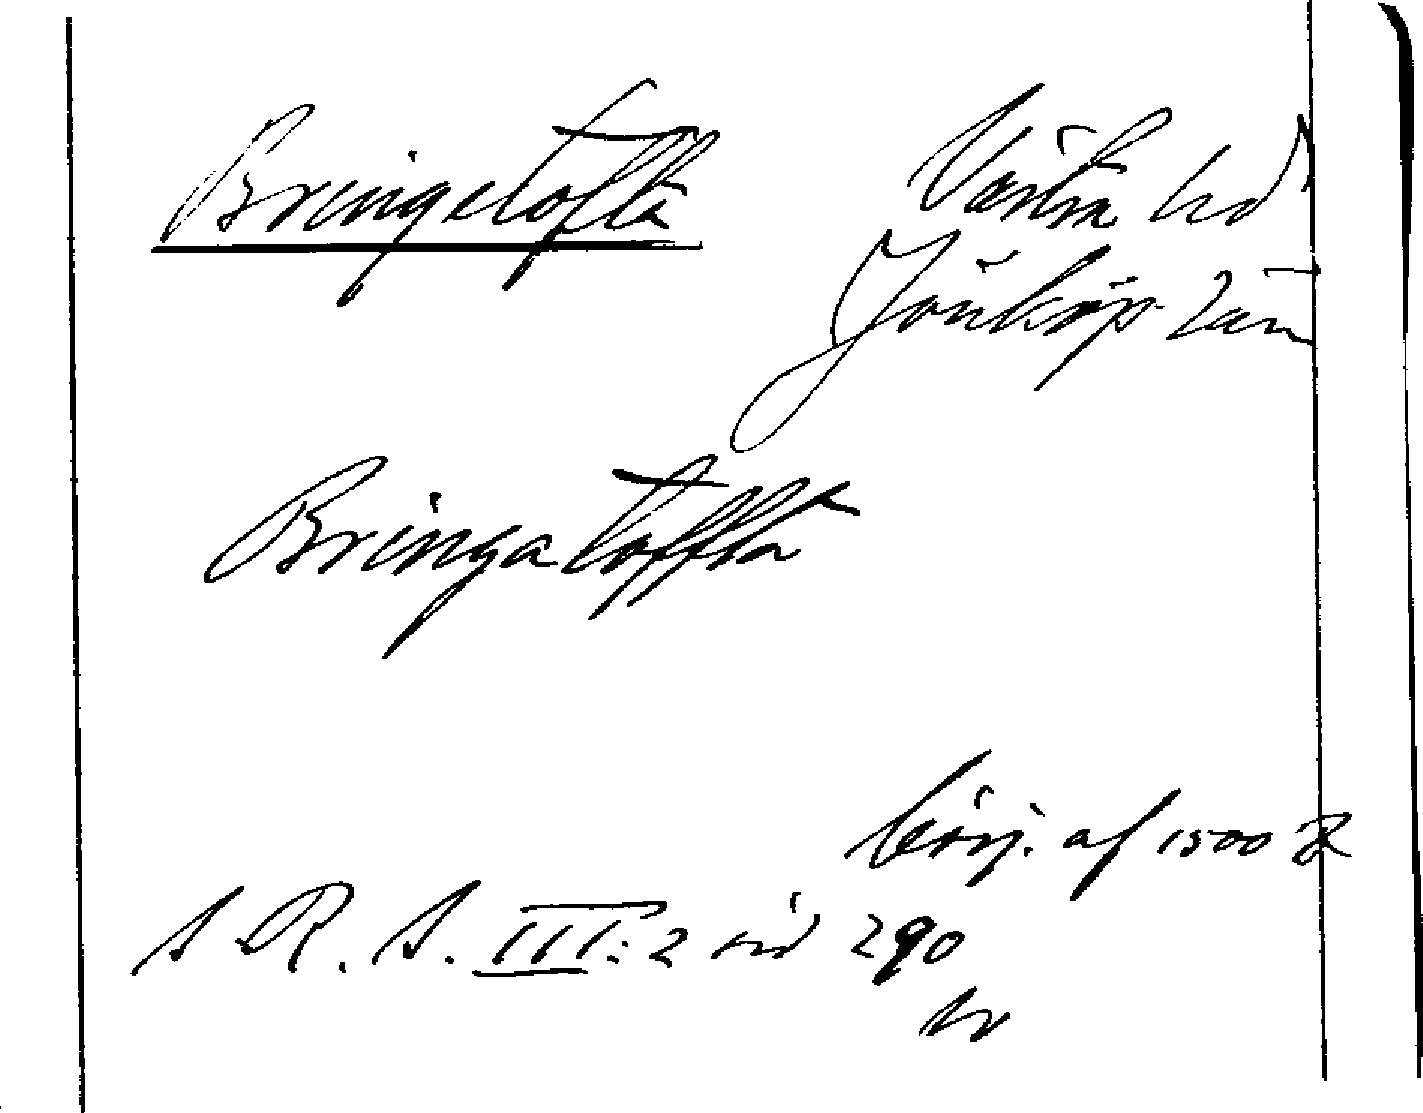 Bringetofta
Västra hd
Jönköp. län
Bringatoffta
börj. af 1500 t
S. R. S. III: 2 sid 290
hr